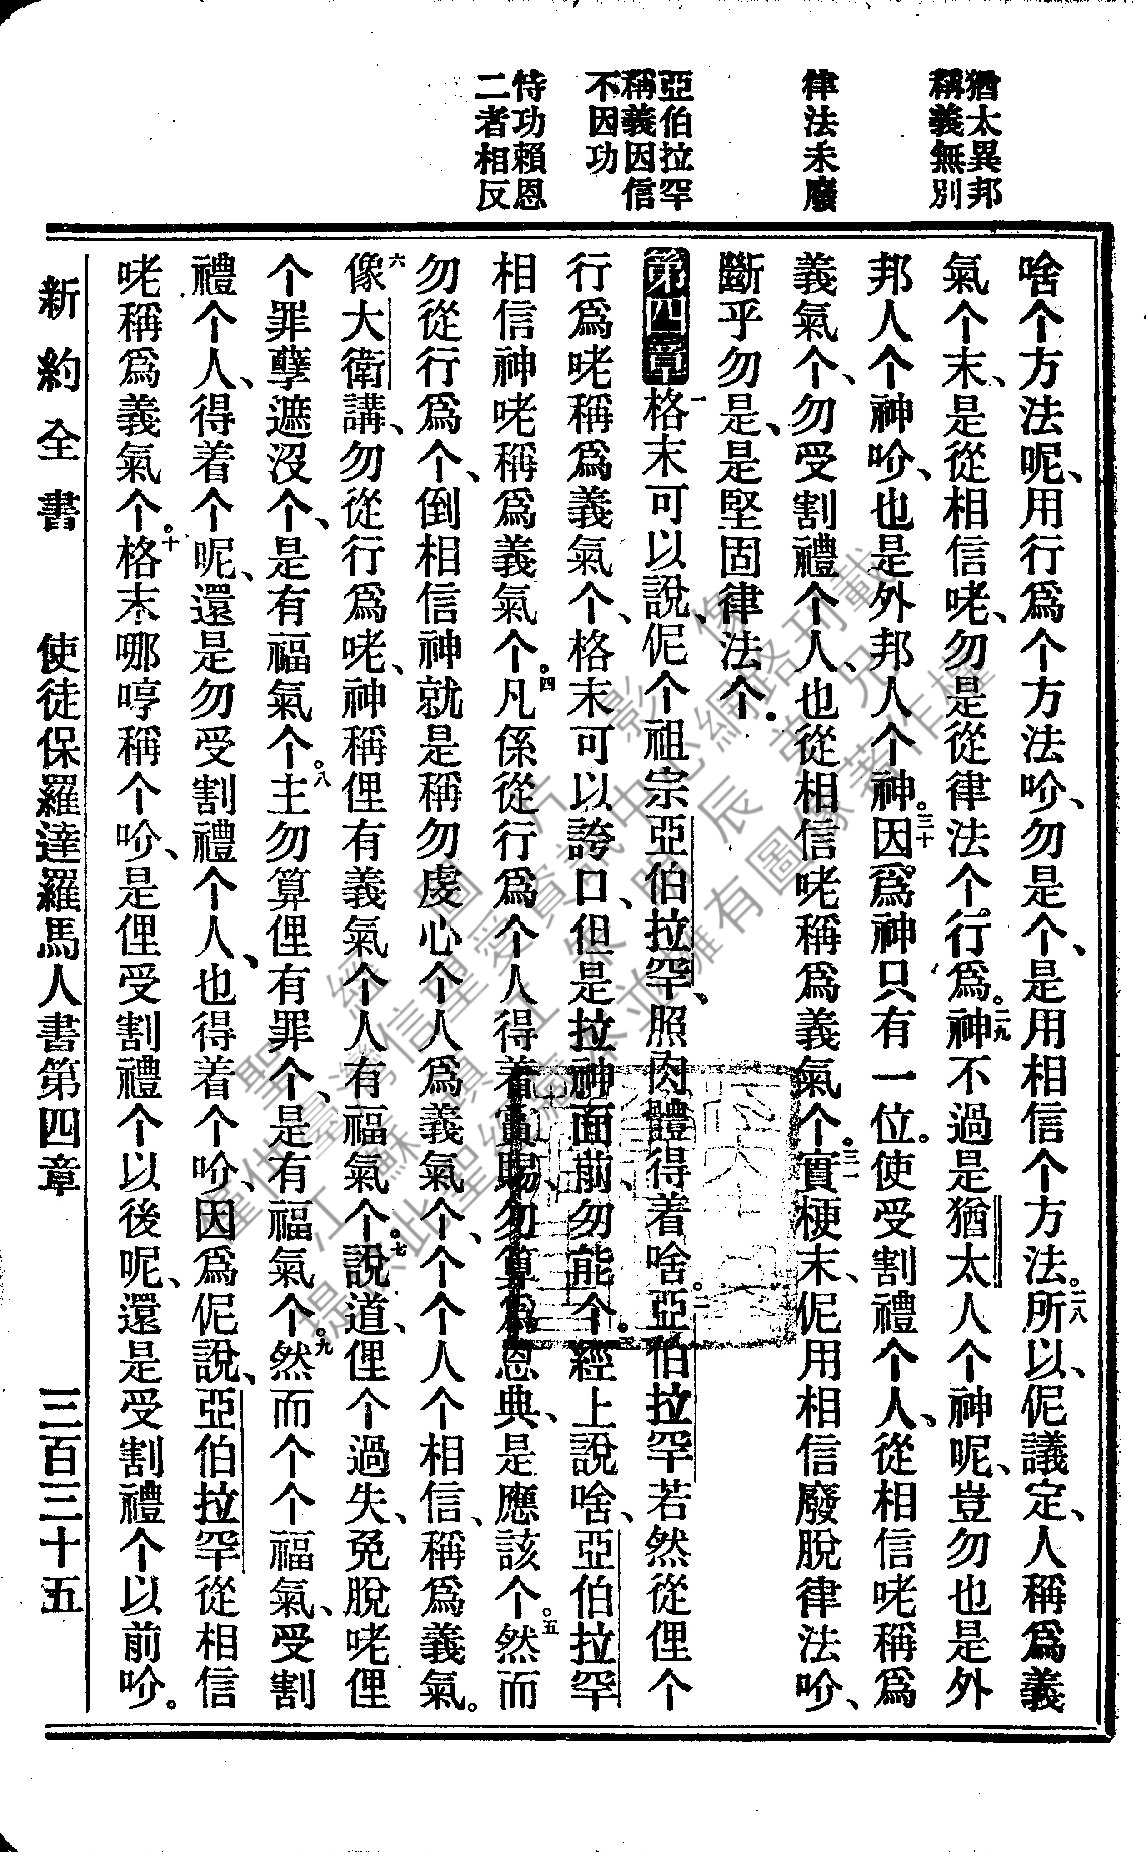 猶太異邦
稱義無別
律法未廢
亞伯拉罕
稱義因信
不因功
恃功賴恩
二者相反
啥个方法呢、用行爲个方法吤、勿是个、是用相信个方法。二八所以、伲議定、人稱爲義
氣个末、是從相信咾、勿是從律法个行爲。二九神不過是猶太人个神呢、豈勿也是外
邦人个神吤、也是外邦人个神。三十因爲神只有一位。使受割禮个人、從相信咾稱爲
義氣个、勿受割禮个人、也從相信咾稱爲義氣个。三一實梗末、伲用相信廢脫律法吤、
斷乎勿是、是堅固律法个。
第四章 一格末可以說、伲个祖宗亞伯拉罕、照肉體得着啥。二亞伯拉罕若然從俚个
行爲咾稱爲義氣个、格末可以誇口、但是拉神面前、勿能个。三經上說啥、亞伯拉罕
相信神咾稱爲義氣个。四凡係從行爲个人得着賞賜、勿算爲恩典、是應該个。五然而
勿從行爲个、倒相信神就是稱勿虔心个人爲義氣个、个个人个相信、稱爲義氣。
六像大衛講、勿從行爲咾、神稱俚有義氣个人有福氣个。七說道、俚个過失、免脫咾俚
个罪孽遮沒个、是有福氣个。八主勿算俚有罪个、是有福氣个。九然而个个福氣、受割
禮个人、得着个呢、還是勿受割禮个人、也得着个吤、因爲伲說、亞伯拉罕從相信
咾稱爲義氣个。十格末哪哼稱个吤、是俚受割禮个以後呢、還是受割禮个以前吤。
新約全書 使徒保羅達羅馬人書第四章 三百三十五
聖經圖片影像
僅供臺灣信望愛資訊中心網路刊載